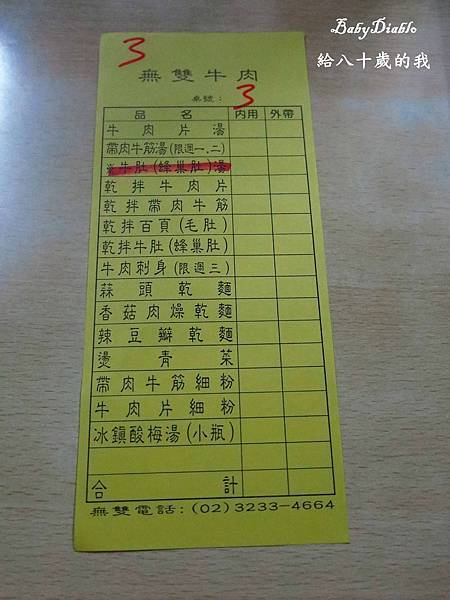 BabyDiablo
給八十歲的我
3
無雙牛肉
桌號：
3
品名 內用 外帶
牛肉片湯
帶肉牛筋湯(限週一、二)
※牛肚(蜂巢肚)湯
乾拌牛肉片
乾拌帶肉牛筋
乾拌百頁(毛肚)
乾拌牛肚(蜂巢肚)
牛肉刺身(限週三)
蒜頭乾麵
香菇肉燥乾麵
辣豆瓣乾麵
燙青菜
帶肉牛筋細粉
牛肉片細粉
冰鎮酸梅湯(小瓶)
合計
無雙電話:(02)3233-4664